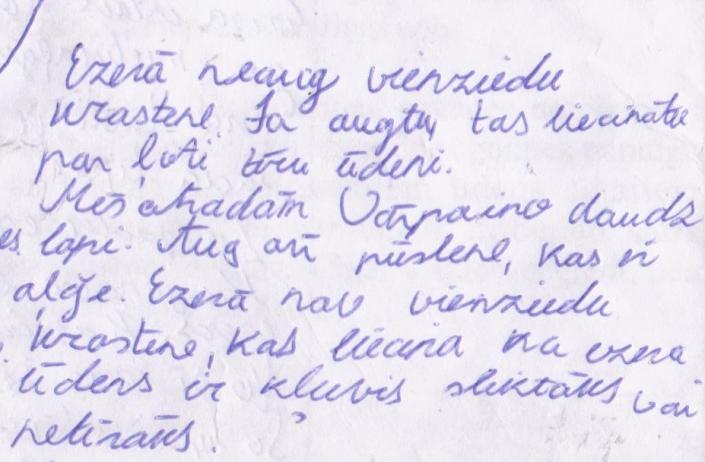 Ezerā neaug vienziedu
krastene. Ja augtu, tas liecinātu
par ļoti tīru ūdeni.
Mēs atradām Vārpaino daudz
lapi. Aug arī pūslene, kas ir
alģe. Ezerā nav vienziedu
krastene, kas liecina ka ezera
ūdens ir kļuvis sliktāks vai
netīrāks.